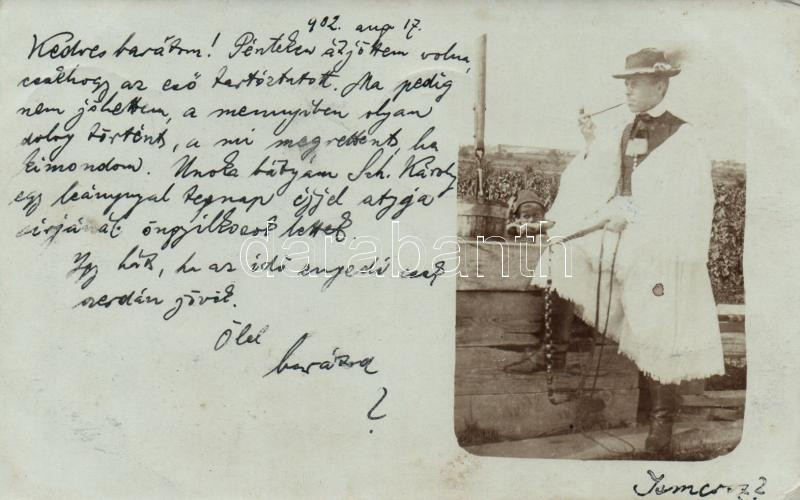 902. aug 17.
Kedves barátom! Pénteken átjöttem volna,
csakhogy az eső tartóztatott. Ma pedig
nem jöhettem, a mennyiben olyan
dolog történt, a mi megrettent, ha
kimondom. Unoka bátyám Sch. Károly
egy leánnyal tegnap éjjel atyja
sirjánál öngyilkosok lettek.
Igy hát, ha az idő engedi csak
szerdán jövök.
Ölel
barátod
?
databanth
?